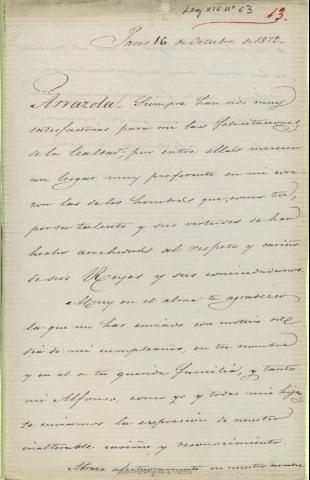 Leg XIV nº 63
13.
Paris 16 de Octubre de 1872.
Arrazola. Siempre han sido muy
satisfactorias para mi las felicitaciones
de la lealtad; pero entre ellas merecen
un lugar muy preferente en mi cora
zon las de los hombres que, como tu,
por su talento y sus virtudes se han
hecho acreedores al respeto y cariño
de sus Reyes y sus conciudadanos.
Muy en el alma te agradezco
la que me has enviado con motivo del
dia de mi cumpleaños, en tu nombre
y en el de tu querida familia, y tanto
mi Alfonso, como yo y todas mis hijas,
te enviamos la expresion de nuestro
inalterable cariño y reconocimiento.
en nuestro nombre